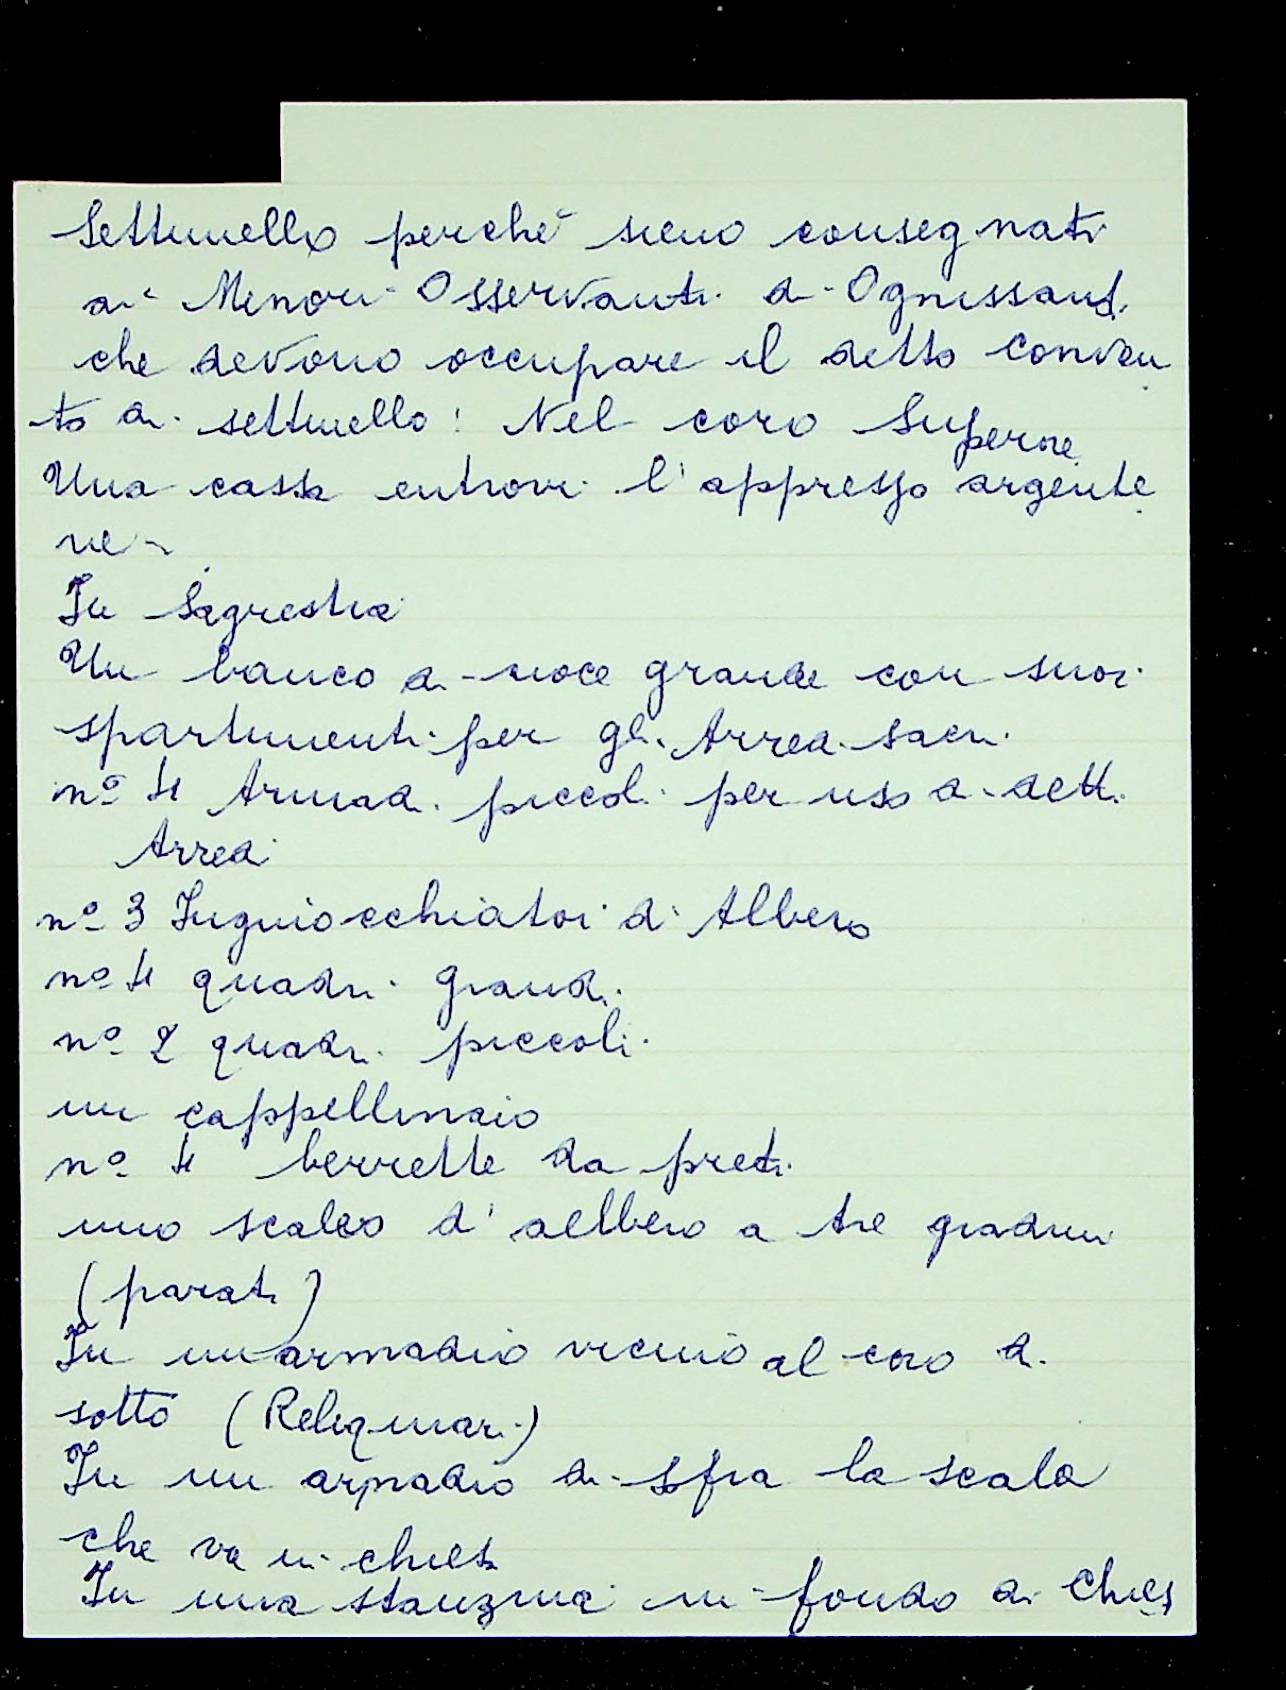 Settimello perchè sieno consegnati
ai Minori Osservanti di Ognissanti
che devono occupare il detto conven
to di settimello: Nel coro Superiore
Una cassa entrovi l'appresso argente
rie -
In Sagrestia
Un banco di noce grande con suoi
spartimenti per gli Arredi sacri
nº 4 Armadi piccoli per uso di detti
Arredi
nº 3 Inguiocchiatoi di Albero
nº 4 quadri grandi
nº 2 quadri piccoli
un cappellinaio
nº 4 berrette da preti
uno scaleo d'albero a tre gradini
(parati)
In un armadio vicino al coro di
sotto (Reliquiari)
In un armadio di sopra la scala
che va in chiesa
In una stanzina in fondo di Chiesa